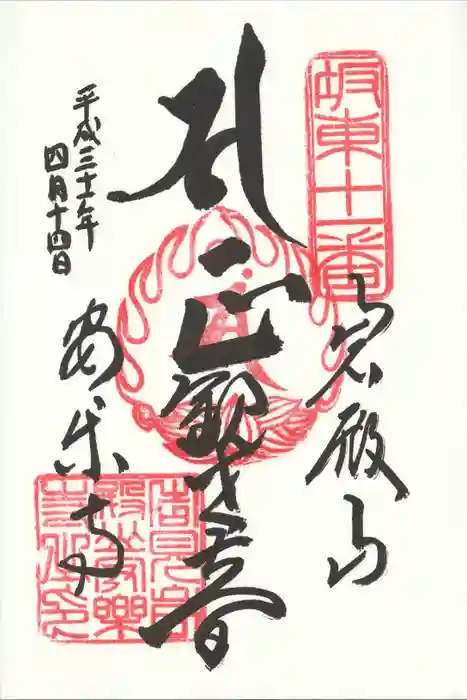 坂東十一番
岩殿山
正観世音
安楽寺
平成三十一年
四月十四日